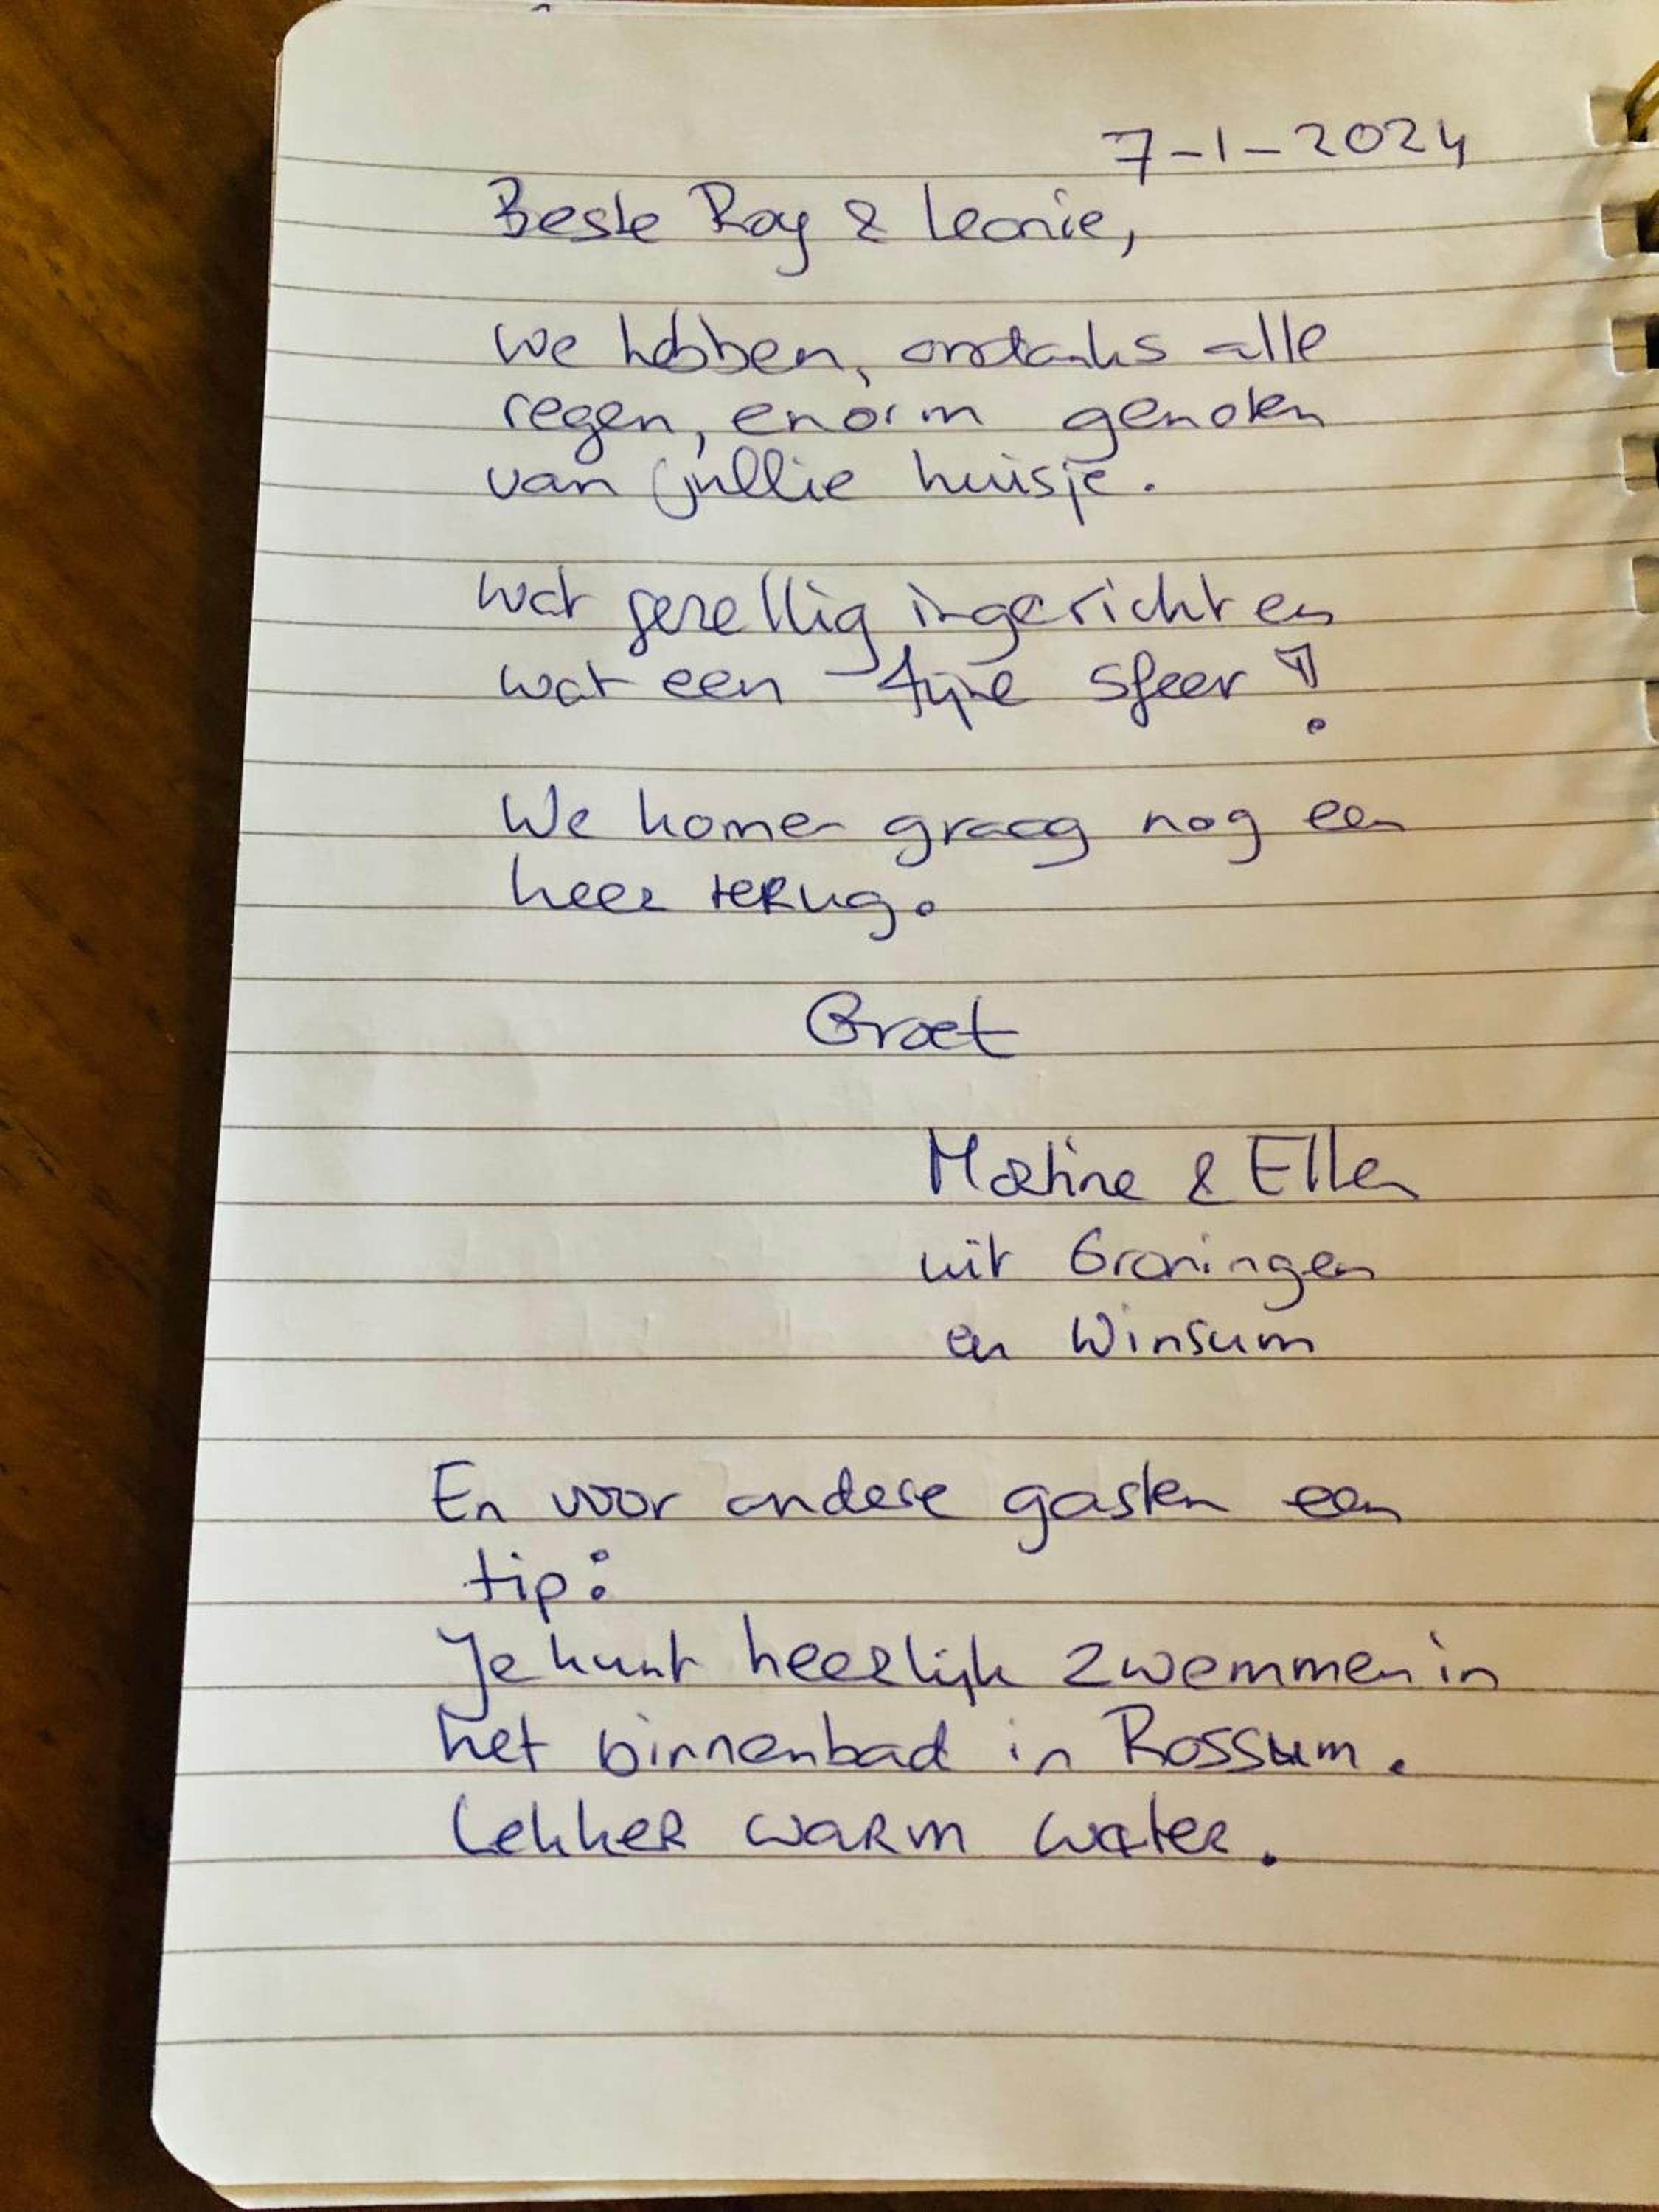 7-1-2024
Beste Roy & Leonie,
we hebben, ondanks alle
regen, enorm genoten
van jullie huisje.
Wat gezellig ingericht en
wat een fijne sfeer!
We komen graag nog een
keer terug.
Groet
Martine & Ellen
uit Groningen
en Winsum
En voor andere gasten een
tip:
Je kunt heerlijk zwemmen in
het binnenbad in Rossum.
Lekker warm water.